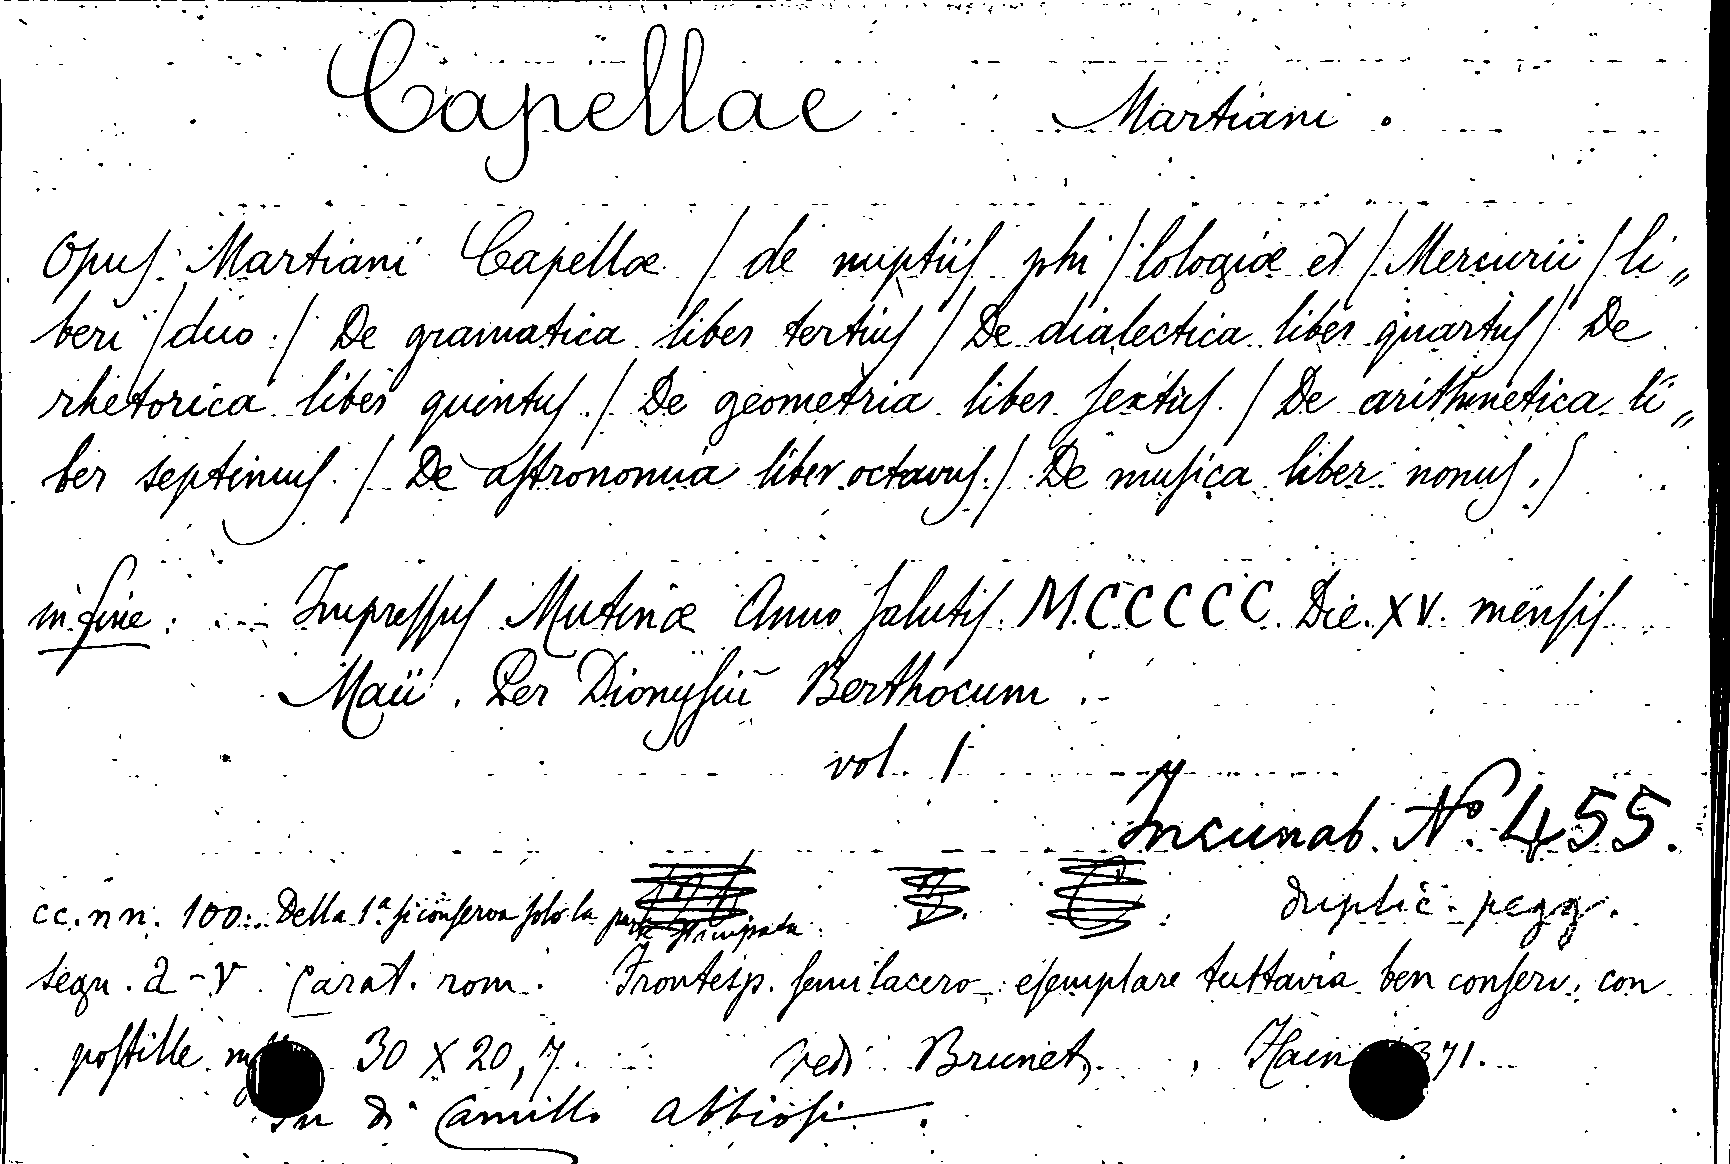 Capellae Martiani.
Opuſ Martiani Capellæ / de nuptiiſ phi / lologiæ et / Mercurii / li„
beri / duo : / De gramatica liber tertiuſ / De dialectica liber quartuſ / De
rhetorica liber quintuſ . / De geometria liber ſextuſ . / De arithmetica li„
ber septimuſ . / De aſtronomia liber octavuſ . / De muſica liber nonuſ . /
in fine : Impreſſuſ Mutinæ Anno ſalutiſ M.CCCCC. Die. XV. menſiſ
Maii . Per Dionyſiū Berthocum .
vol. 1
Incunab. Nº. 455.
cc. n n. 100. Della 1ª si conserva solo la parte stampata. duplic. pegg.
segn. a - v. Carat. rom. Frontesp. semilacero, esemplare tuttavia ben conserv. con
postille 30 X 20,7. vedi Brunet, Hain 371.
Fu di Camillo Abbiosi.